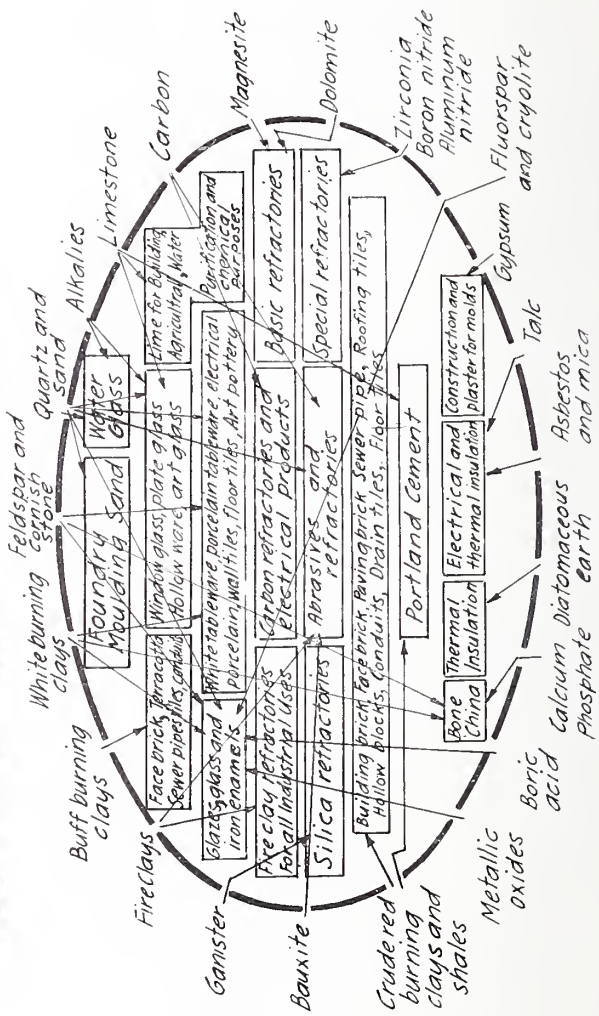 Feldspar and
Cornish
stone
Quartz and
sand
Alkalies
Limestone
Carbon
Magnesite
Dolomite
Zirconia
Boron nitride
Aluminum
nitride
Fluorspar
and cryolite
Gypsum
Talc
Asbestos
and mica
Diatomaceous
earth
Calcium
Phosphate
Boric
acid
Metallic
oxides
Crude red
burning
clays and
shales
Bauxite
Ganister
Fireclays
Buff burning
clays
White burning
clays
Foundry
Moulding Sand
Water
Glass
Face brick, Terracotta
Sewer pipes, tiles, conduits
Window glass, plate glass
Hollow ware, art glass
Lime for Building,
Agricultral, Water
Purification and
chemical
purposes
Glazes, glass and
iron enamels
White tableware, porcelain tableware, electrical
porcelain, walltiles, floor tiles, Art pottery
Fire clay refractories
For all Industrial uses
Carbon refractories and
electrical products
Basic refractories
Silica refractories
Abrasives and
refractories
Special refractories
Building brick, Face brick, Paving brick, Sewer pipe, Roofing tiles,
Hollow blocks, Conduits, Drain tiles, Floor tiles
Portland Cement
Bone
China
Thermal
Insulation
Electrical and
thermal insulation
Construction and
plaster for molds